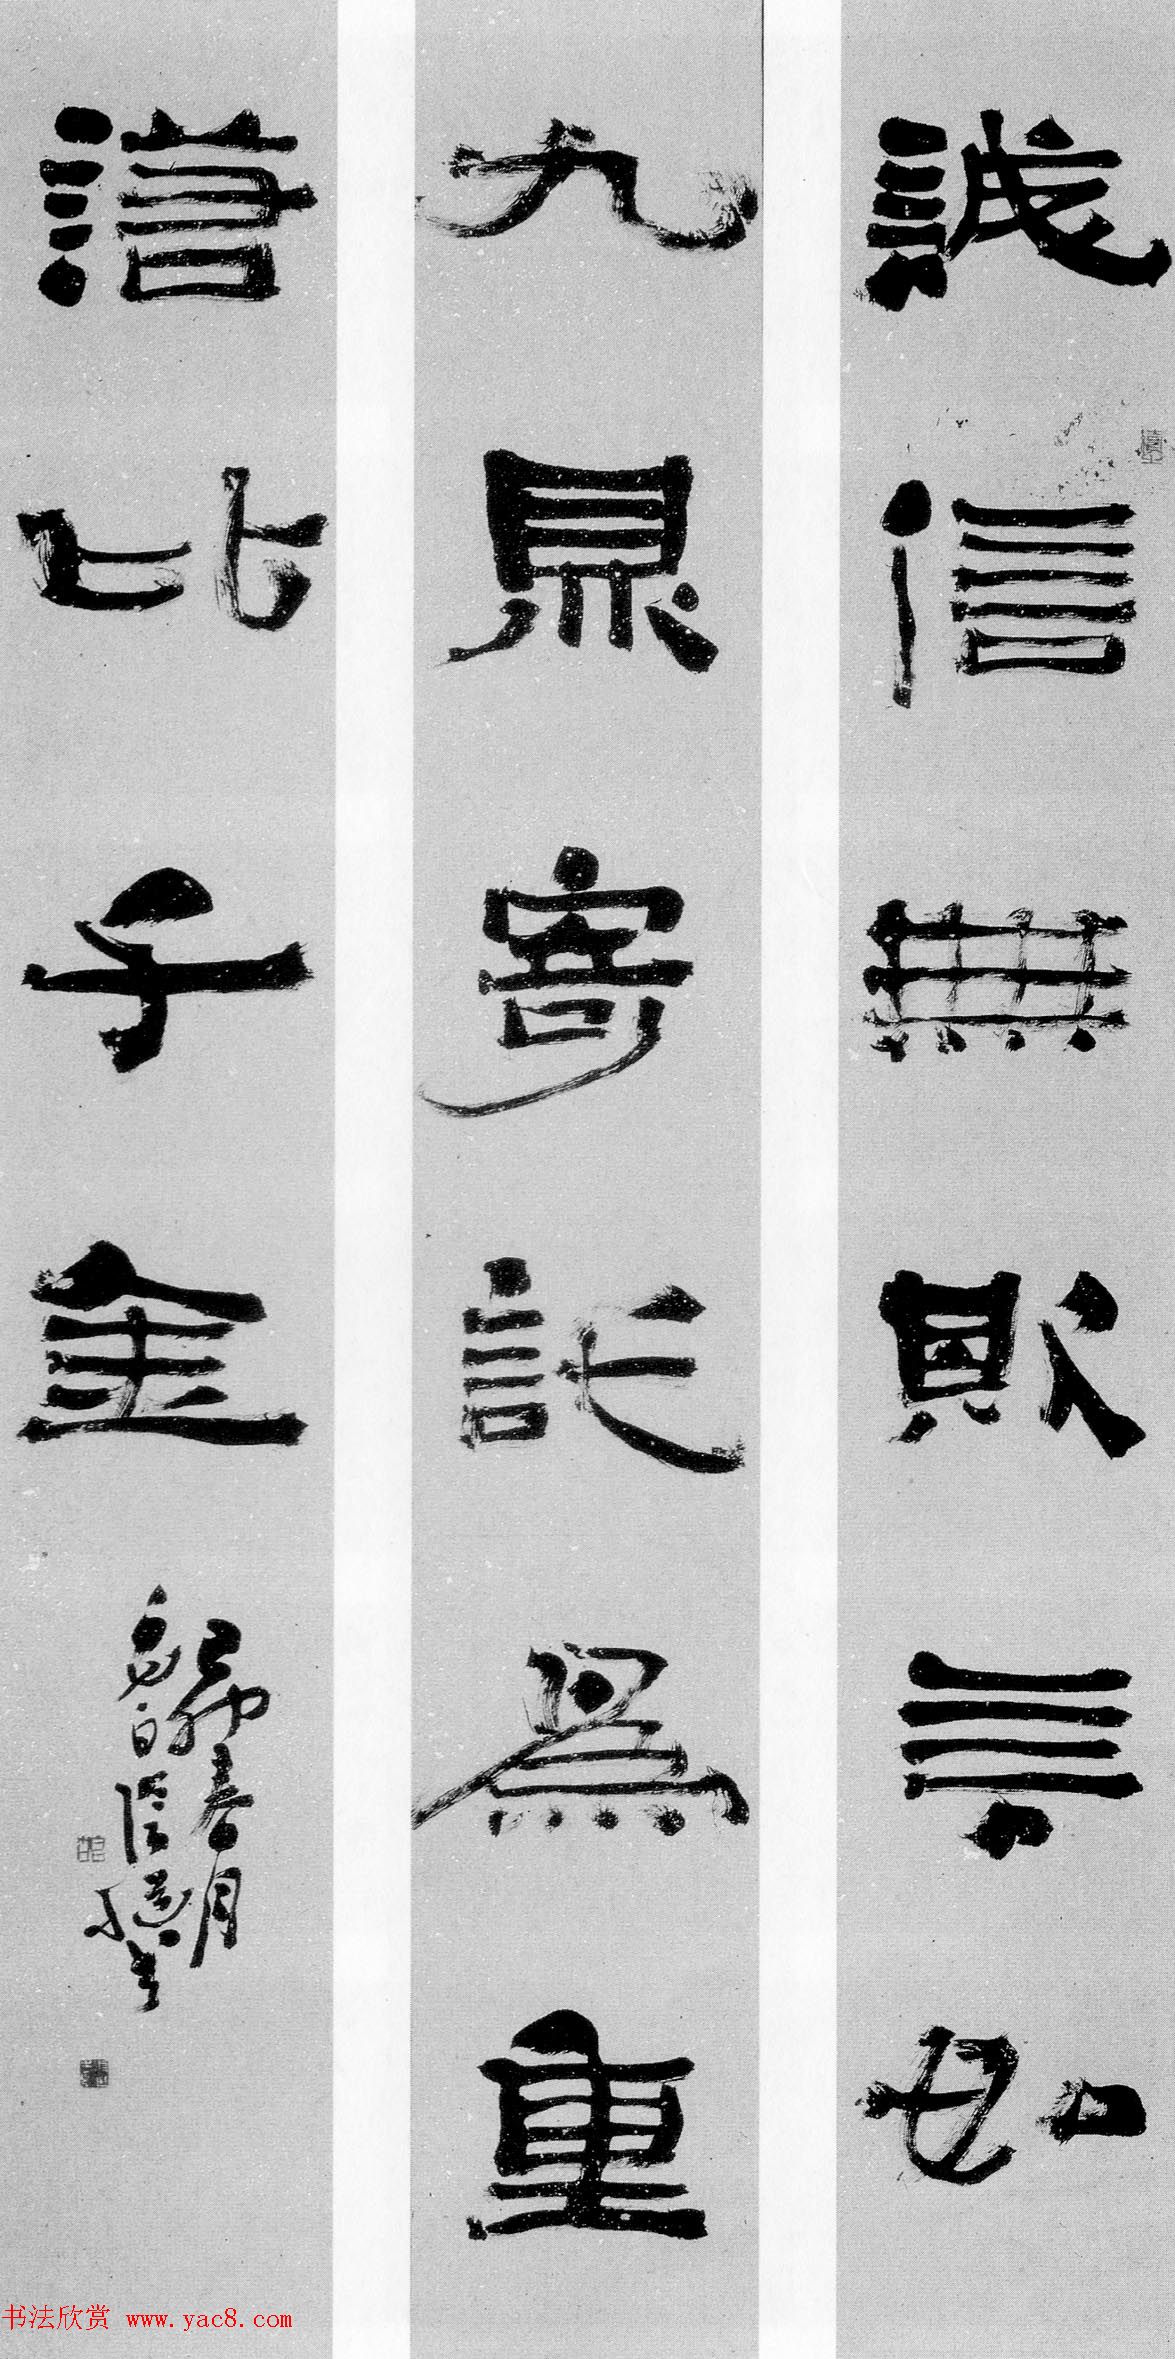 誠信無欺言如
九鼎寄託為重
諾比千金
己卯春月
书法欣赏 www.yac8.com